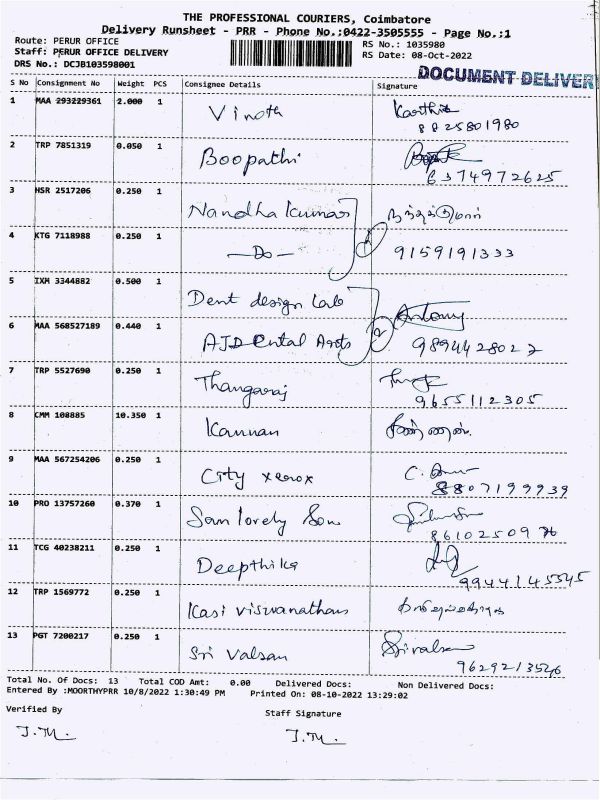 THE PROFESSIONAL COURIERS, Coimbatore
Delivery Runsheet - PRR - Phone No.;0422-3505555 - Page No.;1
Route: PERUR OFFICE
RS No.: 1035980
Staff: PERUR OFFICE DELIVERY
RS Date: 08-Oct-2022
DRS No.: DCJB103598001
DOCUMENT DELIVER
S No Consignment No Weight PCS Consignee Details Signature
1 MAA 293229361 2.000 1 Vinoth Karthik
8825801980
2 TRP 7851319 0.050 1 Boopathi
6374972625
3 HSR 2517206 0.250 1 Nandha Kumar
4 KTG 7118988 0.250 1 —Do— 9159191333
5 IXM 3344882 0.500 1 Dent design Lab Antony
6 MAA 568527189 0.440 1 AJD Dental Arts 9894428027
7 TRP 5527690 0.250 1 Thangaraj
9655112305
8 CMM 108885 10.350 1 Kannan
9 MAA 567254206 0.250 1 City xerox
8807199939
10 PRO 13757260 0.370 1 Sam lovely Son
86102509
11 TCG 40238211 0.250 1 Deepthika
12 TRP 1569772 0.250 1 Kasi viswanathan
13 PGT 7200217 0.250 1 Sri Valsan Srivalsan
9629213526
Total No. Of Docs: 13 Total COD Amt: 0.00 Delivered Docs: Non Delivered Docs:
Entered By :MOORTHYPRR 10/8/2022 1:30:49 PM Printed On: 08-10-2022 13:29:02
Verified By Staff Signature
J.M. J.M.